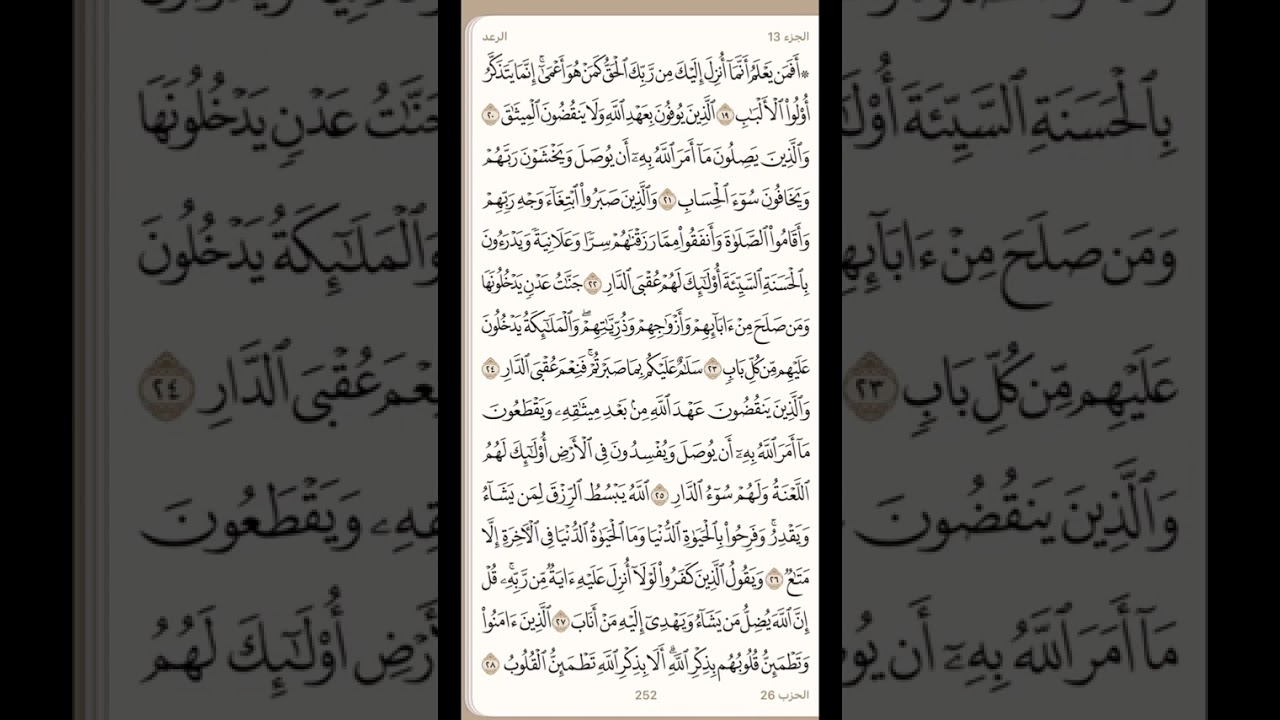 الجزء 13
الرعد
۞ أَفَمَن يَعْلَمُ أَنَّمَآ أُنزِلَ إِلَيْكَ مِن رَّبِّكَ ٱلْحَقُّ كَمَنْ هُوَ أَعْمَىٰٓ ۚ إِنَّمَا يَتَذَكَّرُ
أُو۟لُوا۟ ٱلْأَلْبَـٰبِ ١٩ ٱلَّذِينَ يُوفُونَ بِعَهْدِ ٱللَّهِ وَلَا يَنقُضُونَ ٱلْمِيثَـٰقَ ٢٠
وَٱلَّذِينَ يَصِلُونَ مَآ أَمَرَ ٱللَّهُ بِهِۦٓ أَن يُوصَلَ وَيَخْشَوْنَ رَبَّهُمْ
وَيَخَافُونَ سُوٓءَ ٱلْحِسَابِ ٢١ وَٱلَّذِينَ صَبَرُوا۟ ٱبْتِغَآءَ وَجْهِ رَبِّهِمْ
وَأَقَامُوا۟ ٱلصَّلَوٰةَ وَأَنفَقُوا۟ مِمَّا رَزَقْنَـٰهُمْ سِرًّا وَعَلَانِيَةً وَيَدْرَءُونَ
بِٱلْحَسَنَةِ ٱلسَّيِّئَةَ أُو۟لَـٰٓئِكَ لَهُمْ عُقْبَى ٱلدَّارِ ٢٢ جَنَّـٰتُ عَدْنٍ يَدْخُلُونَهَا
وَمَن صَلَحَ مِنْ ءَابَآئِهِمْ وَأَزْوَٰجِهِمْ وَذُرِّيَّـٰتِهِمْ ۖ وَٱلْمَلَـٰٓئِكَةُ يَدْخُلُونَ
عَلَيْهِم مِّن كُلِّ بَابٍ ٢٣ سَلَـٰمٌ عَلَيْكُم بِمَا صَبَرْتُمْ ۚ فَنِعْمَ عُقْبَى ٱلدَّارِ ٢٤
وَٱلَّذِينَ يَنقُضُونَ عَهْدَ ٱللَّهِ مِنۢ بَعْدِ مِيثَـٰقِهِۦ وَيَقْطَعُونَ
مَآ أَمَرَ ٱللَّهُ بِهِۦٓ أَن يُوصَلَ وَيُفْسِدُونَ فِى ٱلْأَرْضِ أُو۟لَـٰٓئِكَ لَهُمُ
ٱللَّعْنَةُ وَلَهُمْ سُوٓءُ ٱلدَّارِ ٢٥ ٱللَّهُ يَبْسُطُ ٱلرِّزْقَ لِمَن يَشَآءُ
وَيَقْدِرُ ۚ وَفَرِحُوا۟ بِٱلْحَيَوٰةِ ٱلدُّنْيَا وَمَا ٱلْحَيَوٰةُ ٱلدُّنْيَا فِى ٱلْـَٔاخِرَةِ إِلَّا
مَتَـٰعٌ ٢٦ وَيَقُولُ ٱلَّذِينَ كَفَرُوا۟ لَوْلَآ أُنزِلَ عَلَيْهِ ءَايَةٌ مِّن رَّبِّهِۦ ۗ قُلْ
إِنَّ ٱللَّهَ يُضِلُّ مَن يَشَآءُ وَيَهْدِىٓ إِلَيْهِ مَنْ أَنَابَ ٢٧ ٱلَّذِينَ ءَامَنُوا۟
وَتَطْمَئِنُّ قُلُوبُهُم بِذِكْرِ ٱللَّهِ ۗ أَلَا بِذِكْرِ ٱللَّهِ تَطْمَئِنُّ ٱلْقُلُوبُ ٢٨
الحزب 26
252